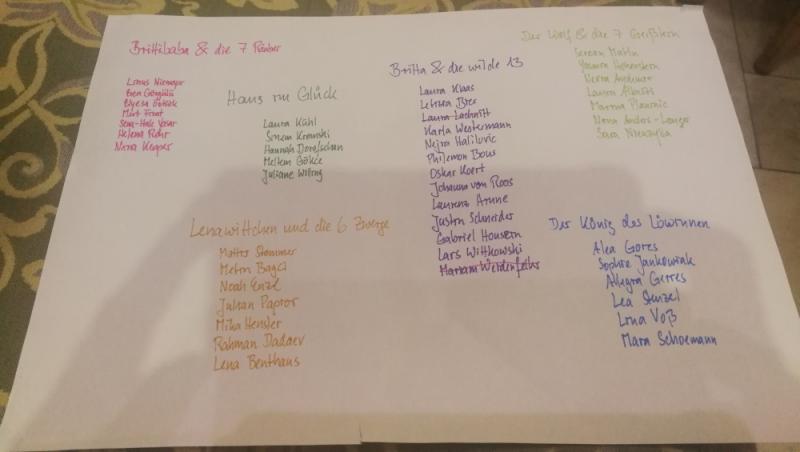 Brittibaba & die 7 Räuber
Linus Niemeyer
Eren Göngülü
Elyesa Öztürk
Mert Fırat
Helena Rohr
Nina Kemper
Hans im Glück
Laura Kühl
Sinem Krowski
Hannah Dorefschan
Meltem Gökce
Juliane Wilting
Britta & die wilde 13
Laura Klaas
Letizia Bier
Laura Lachnitt
Karla Westermann
Nejra Halilovic
Philemon Bous
Oskar Koert
Johanna van Roos
Laurenz Arune
Justin Schneider
Gabriel Housein
Lars Wittkowski
Mariam Weidenfeller
Der Wolf & die 7 Geißlein
Yasmin
Laura
Marina
Nena Anders-Langer
Sara
Lenawittchen und die 6 Zwerge
Mattis Stemmer
Metin Bagci
Noah Enzel
Julian Papror
Mika Hensler
Rahman Dadaev
Lena Benthaus
Der König des Löwinnen
Alea Gores
Sophie Jankowiak
Allegra Gerres
Lea Stenzel
Lina Voß
Mara Schoemann